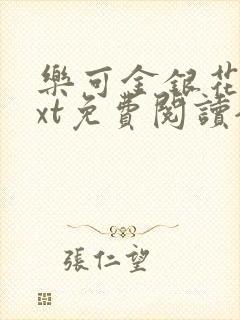 樂可金銀花
xt免費閱讀
張仁望